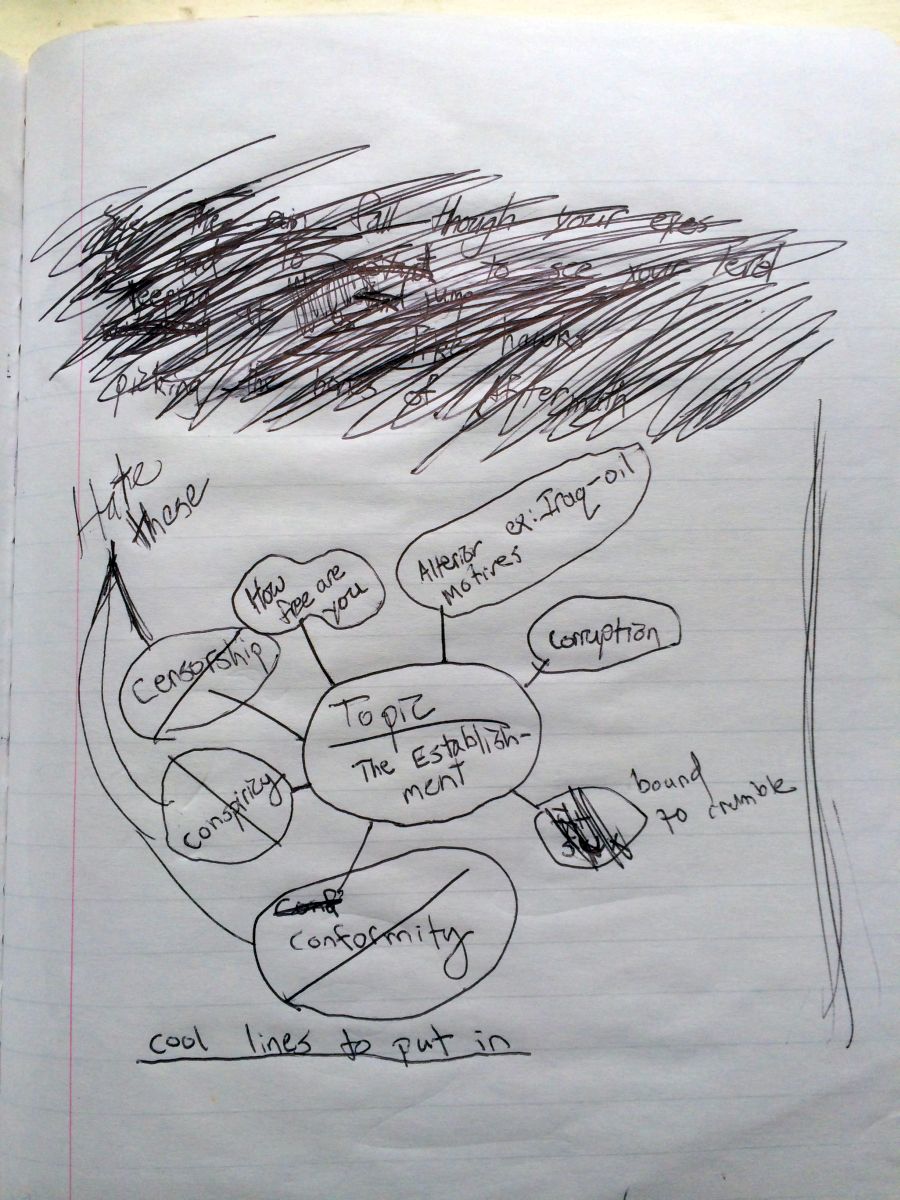 the rain fall though your eyes
to to see your level
keeping
like hawks
picking the bones of Aftermath
Hate
these
How
free are
you
Alterior
motives
ex: Iraq-oil
Censorship
Corruption
Topic
The Establish-
ment
Conspirizy
bound
to crumble
Conf
Conformity
cool lines to put in